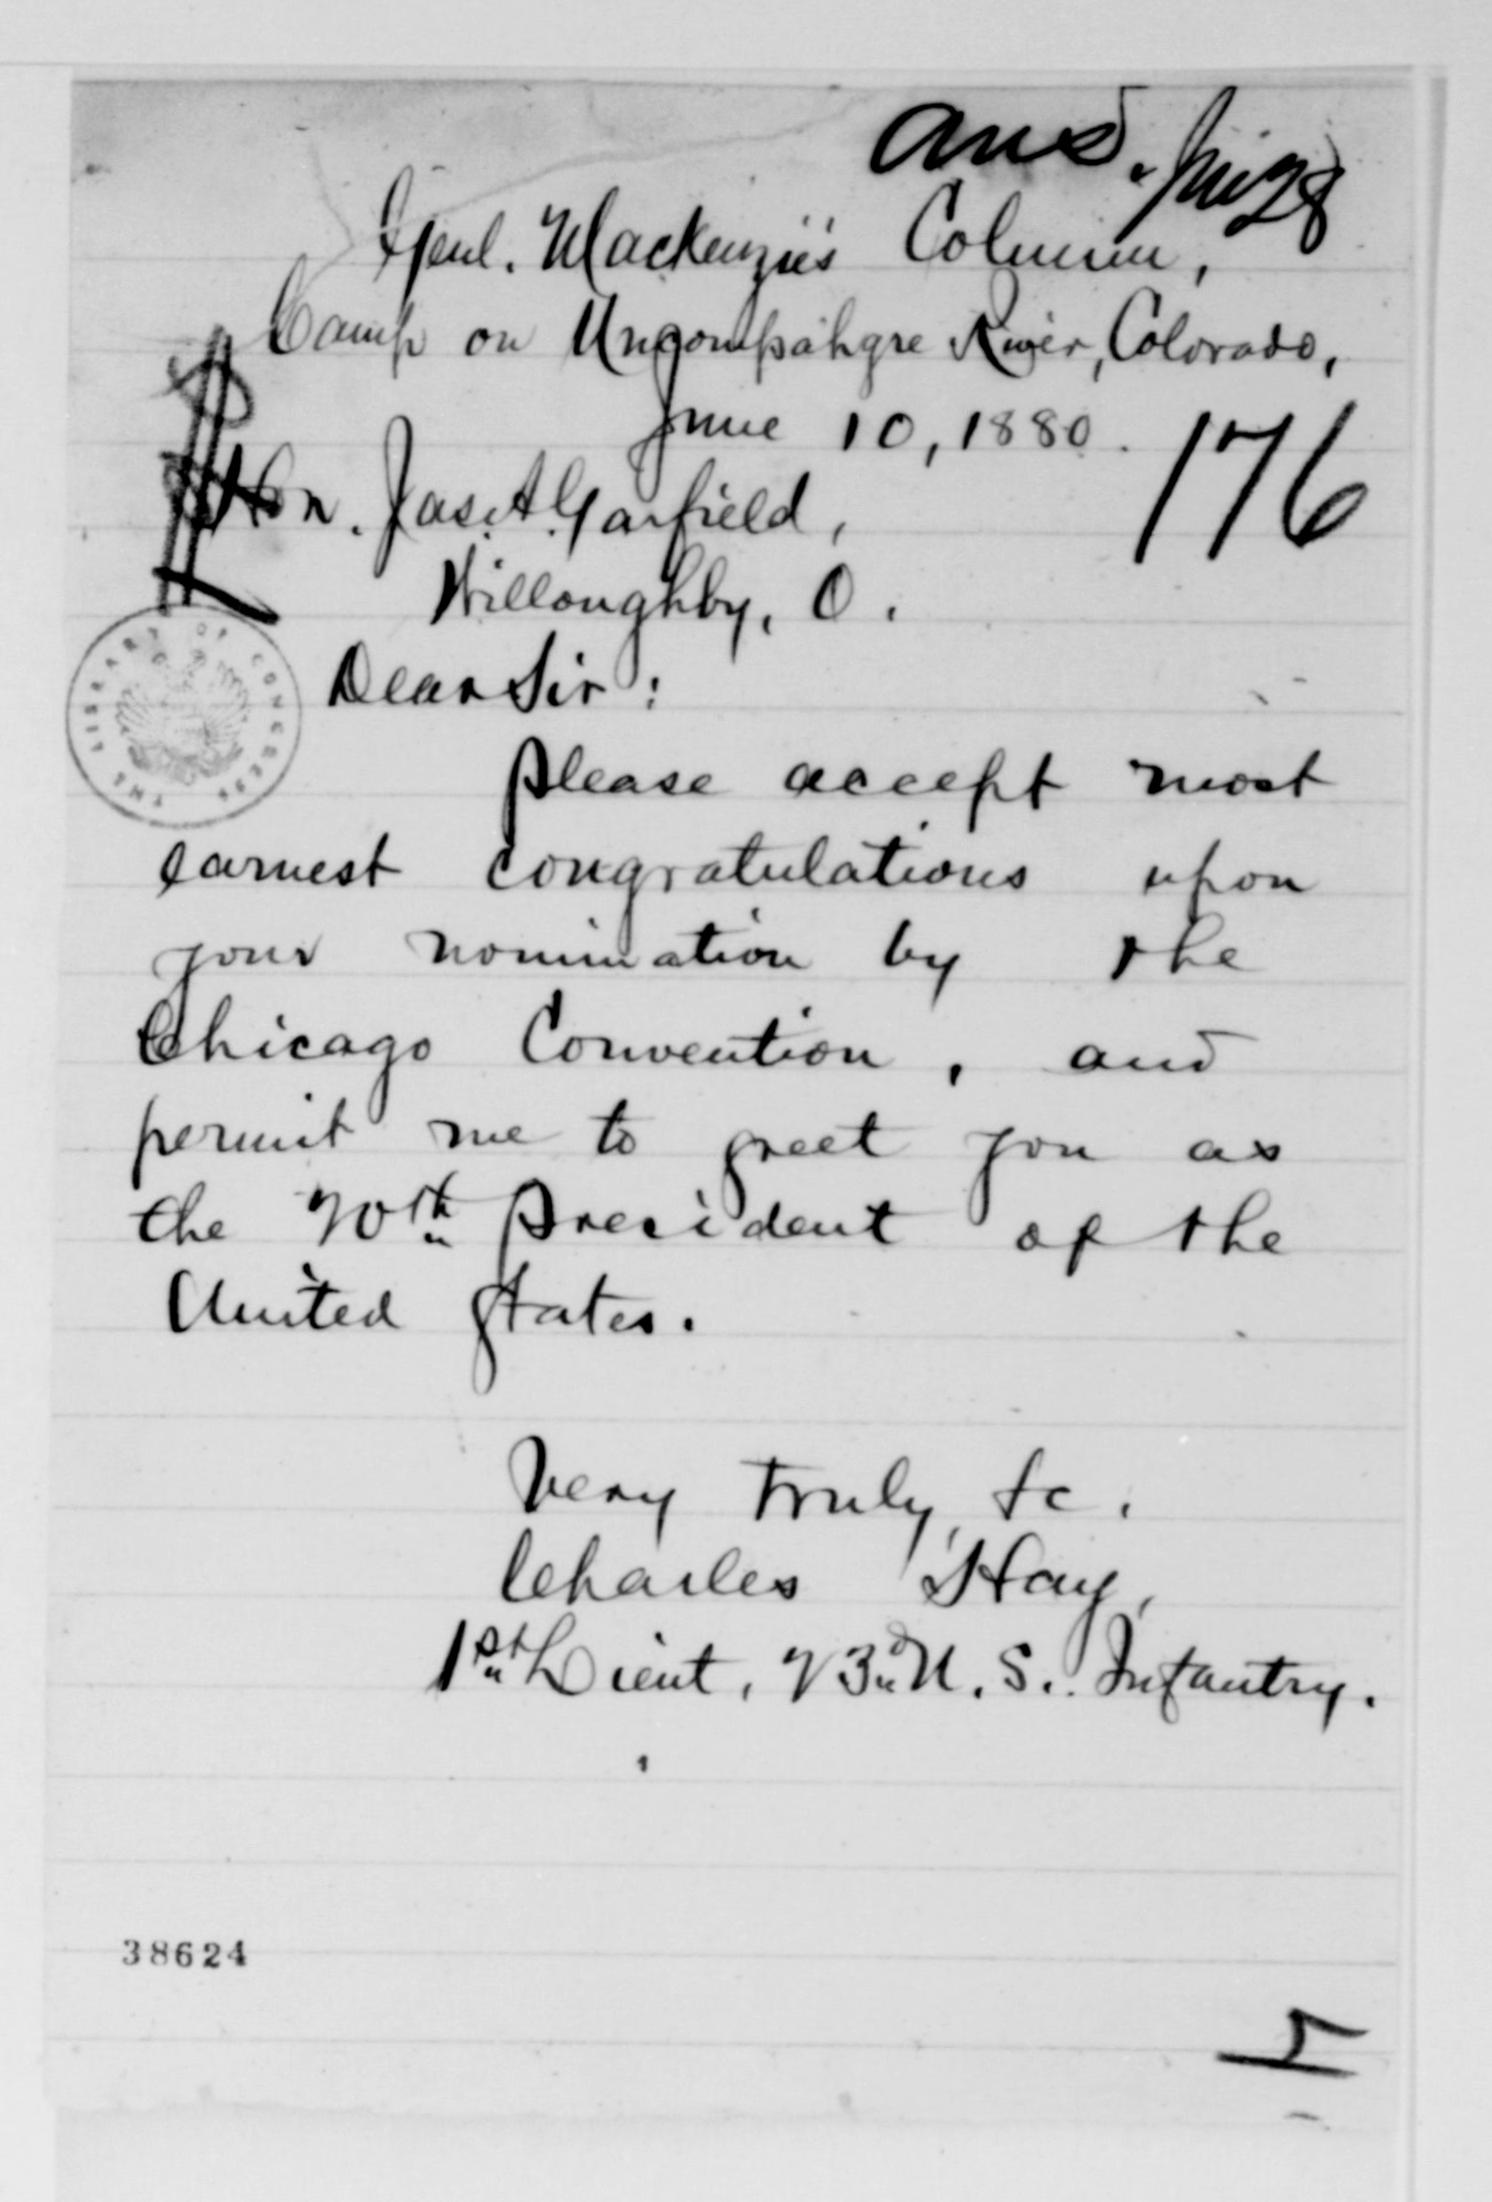 Ansd. Jun 28
Genl. Mackenzie's Column,
Camp on Uncompahgre River, Colorado,
June 10, 1880.
176
Hon. Jas. A. Garfield,
Willoughby, O.
THE LIBRARY OF CONGRESS
Dear Sir:
Please accept most
earnest congratulations upon
your nomination by the
Chicago Convention, and
permit me to greet you as
the 20th President of the
United States.
Very truly, &c.
Charles Hay,
1st Lieut, 23d U. S. Infantry.
38624